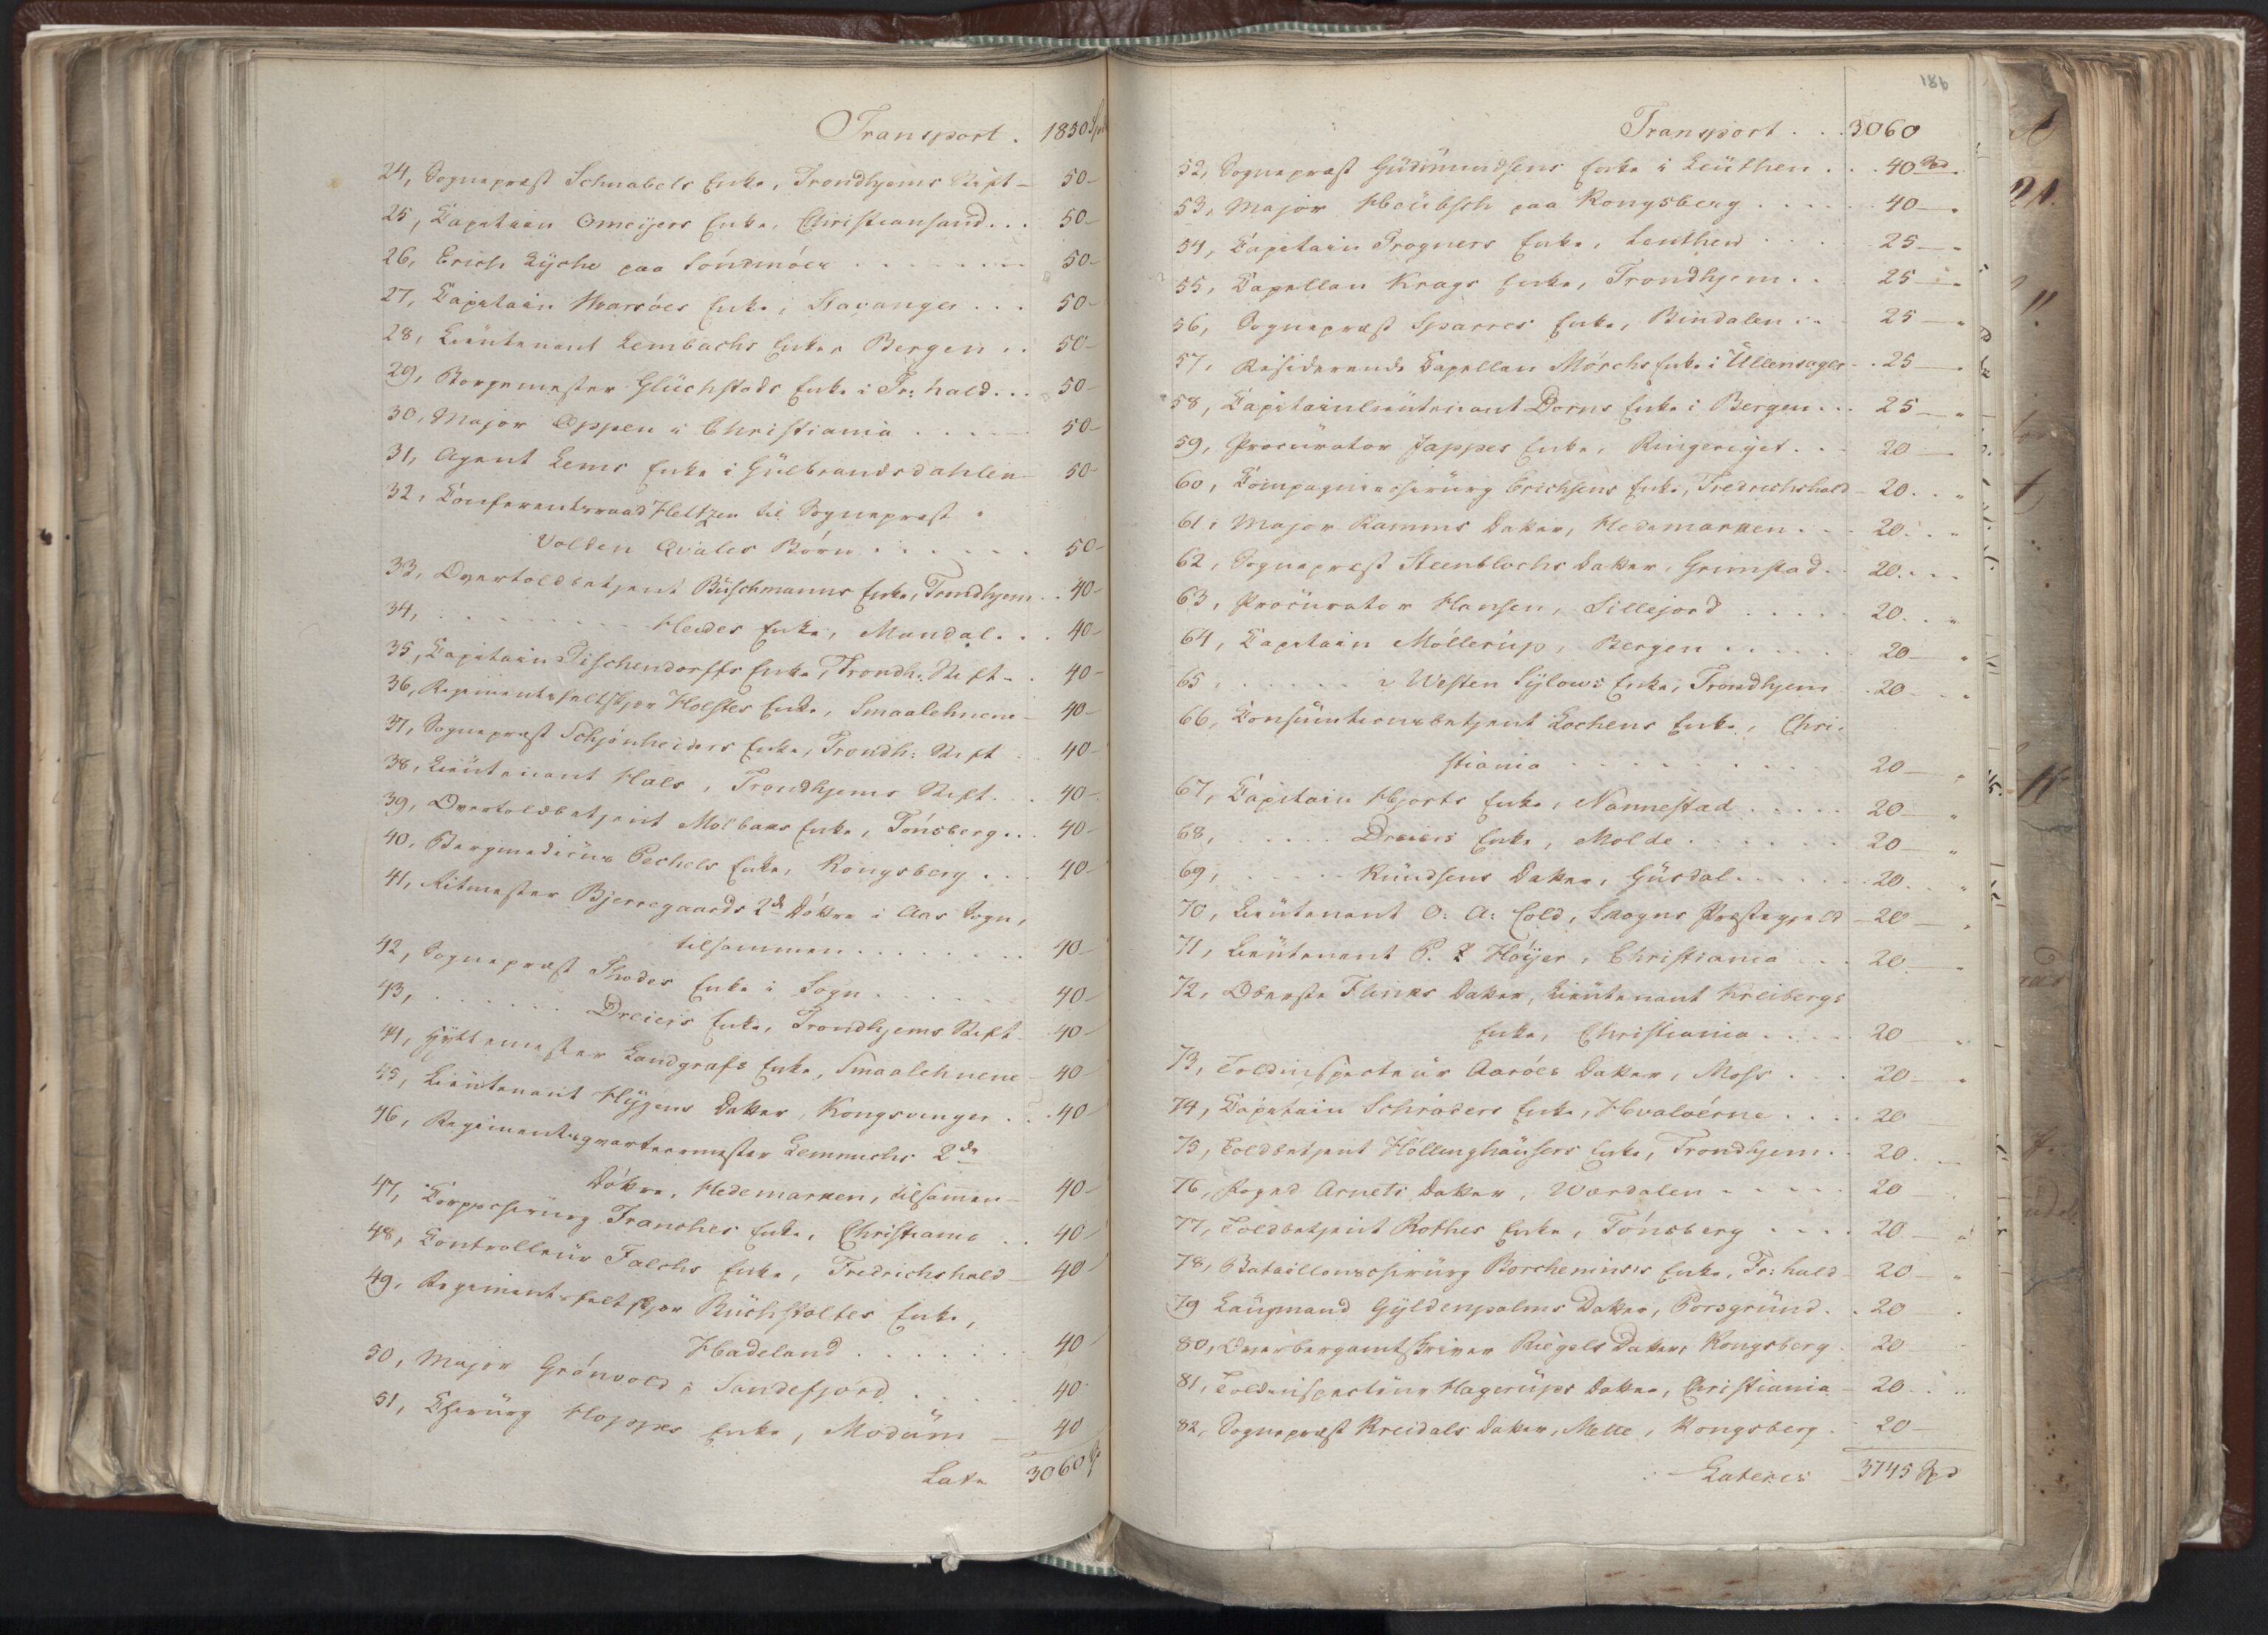 Transport . 1850 Spd
24, Sognepræst Schnabels Enke, Trondhjems Stift - 50 -
25, Capitain Omeijers Enke, Christiansand . . . 50 -
26, Erich Lyche paa Söndmöer . . . . . . . 50 -
27, Capitain Hvarsöes Enke, Stavanger . . . 50 -
28, Lieutenant Lembachs Enke, Bergen . . 50 -
29, Borgemester Glückstads Enke i Fr: hald . . . 50 -
30, Major Oppen i Christiania . . . . . 50 -
31, Agent Lems Enke i Gülbrandsdahlen 50 -
32, Conferentsraad Heltzen til Sognepræst
Volden Qvales Börn . . . . . . 50 -
33, Overtoldbetjent Büschmanns Enke, Trondhjem . . 40 -
34, . . . . . . . . Heides Enke, Mandal . . . 40 -
35, Capitain Tischendorffs Enke, Trondh: Stift - . 40 -
36, Regimentsfeltskjær Holstes Enke, Smaalehnene - 40 -
37, Sognepræst Schjönheiders Enke, Trondh: Stift . 40 -
38, Lieutenant Hals, Trondhjems Stift . . . 40 -
39, Overtoldbetjent Molbaks Enke, Tönsberg . . . 40 -
40, Bergmedicus Pechels Enke, Kongsberg . . . 40 -
41, Ritmester Bjerregaards 2de Döttre i Aas Sogn,
tilsammen . . . . . . . . 40 -
42, Sognepræst Thodes Enke i Sogn . . . . . . 40 -
43, . . . . . . Dreiers Enke, Trondhjems Stift - 40 -
44, Hyttemester Landgrafs Enke, Smaalehnene - 40 -
45, Lieutenant Heyens Datter, Kongsvinger . . . 40 -
46, Regimentsqvarteermester Lemmichs 2de
Döttre, Hedemarken, tilsamen - 40 -
47, Corpschirürg Tranches Enke, Christiania . . 40 -
48, Controlleür Falchs Enke, Fredrichshald - 40 -
49, Regimentsfeltskjær Büchholtes Enke,
Hadeland . . . . . . . 40 -
50, Major Grönvold i Sandefjord . . . . 40 -
51, Chirürg Hoppes Enke, Modüm - 40
Latr 3060 Sp
186
Transport . . . 3060
52, Sognepræst Güdmündsens Enke i Leüthen . . . 40 Spd
53, Major Hoübsch paa Kongsberg . . . . . 40 -
54, Capitain Trogners Enke, Leuthen . . . 25 -
55, Capellan Krags Enke, Trondhjem . . 25 -
56, Sognepræst Sparres Enke, Bindalen . . 25 -
57, Residerende Capellan Mörchs Enke i Üllensager - . 25 -
58, Capitainlieütenant Dorns Enke i Bergen . . . 25 -
59, Procürator Jappes Enke, Ringeriget . . . 20 -
60, Compagniechirürg Erichsens Enke, Fredrichshald - 20 . .
61, Major Ramms Datter, Hedemarken . . . 20 . .
62, Sognepræst Steenblochs Datter, Grimstad . . 20 . .
63, Procürator Hansen, Sillejord . . . . . 20 . .
64, Capitain Möllerüp, Bergen . . . . . 20 -
65, . . . . . . v Westen Sylows Enke, Trondhjem . 20 -
66, Consümtionsbetjent Lochens Enke, Chri-
stiania . . . . . . . . 20 -
67, Capitain Hjorts Enke, Nannestad . . . . . 20 -
68, . . . . . Dreiers Enke, Molde . . . . . . 20 -
69, . . . . . Knüdsens Datter, Güsdal . . . . . 20 .
70, Lieütenant O: A: Cold, Skogns Præstegjeld - 20 -
71, Lieütenant P. Z Höyer, Christiania . . . 20 -
72, Oberste Flinks Datter, Lieütenant Kreibergs
Enke, Christiania . . . . . 20 -
73, Toldinspecteür Aaröes Datter, Moss . . . 20 -
74, Capitain Schröders Enke, Hvalöerne . . . . 20
75, Toldbetjent Höllinghäusers Enke, Trondhjem . . 20 . -
76, Foged Arnets Datter, Wærdalen . . . . . 20
77, Toldbetjent Rothes Enke, Tönsberg . . . . 20 -
78, Bataillonschirürg Borchenins's Enke, Fr: hald - 20 -
79 Laügmand Gyldenpalms Datter, Porsgründ . . 20 .
80, Overbergamtskriver Riegels Datter, Kongsberg . 20 -
81, Toldinspecteürr Hagerüps Datter, Christiania - 20 . .
82, Sognepræst Kreidals Datter, Mette, Kongsberg . 20 -
Lateres 3745 Spd